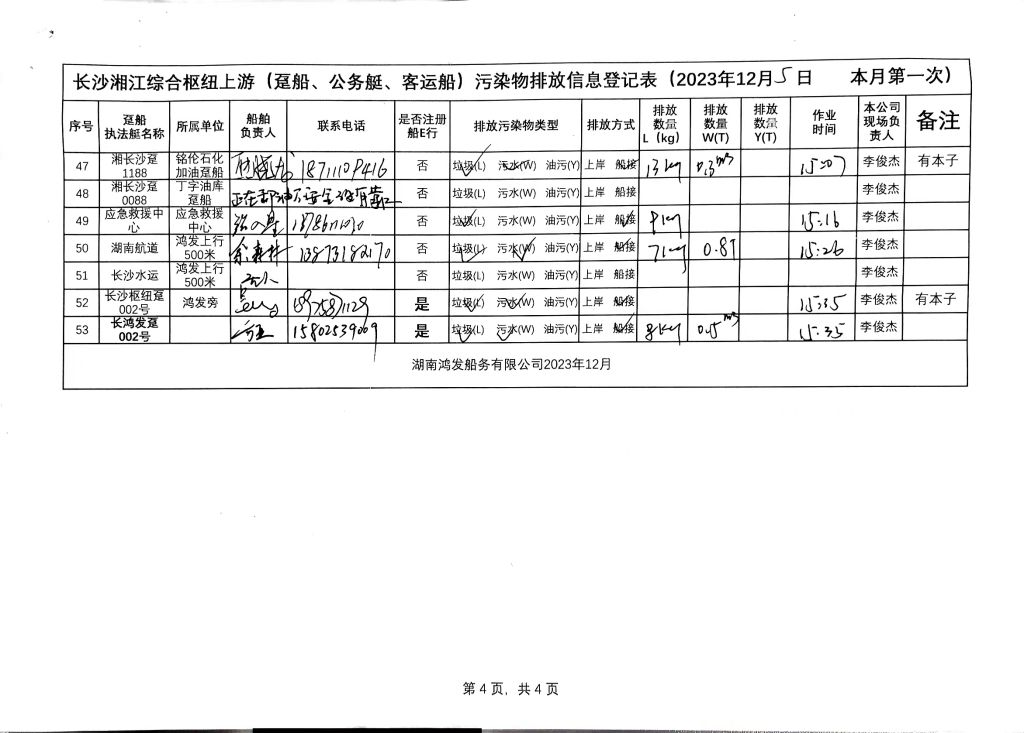 长沙湘江综合枢纽上游（趸船、公务艇、客运船）污染物排放信息登记表（2023年12月5日 本月第一次）
序号 趸船执法艇名称 所属单位 船舶负责人 联系电话 是否注册船E行 排放污染物类型 排放方式 排放数量L（kg） 排放数量W(T) 排放数量Y(T) 作业时间 本公司现场负责人 备注
47 湘长沙趸1188 铭伦石化加油趸船 18711109416 否 垃圾(L) 污水(W) 油污(Y) 上岸 船接 13kg 0.3m³ 15:07 李俊杰 有本子
48 湘长沙趸0088 丁字油库趸船 正在卸油不安全没有靠 否 垃圾(L) 污水(W) 油污(Y) 上岸 船接 李俊杰
49 应急救援中心 应急救援中心 否 垃圾(L) 污水(W) 油污(Y) 上岸 船接 15:16 李俊杰
50 湖南航道 鸿发上行500米 13873182170 否 垃圾(L) 污水(W) 油污(Y) 上岸 船接 71kg 0.8T 15:26 李俊杰
51 长沙水运 鸿发上行500米 否 垃圾(L) 污水(W) 油污(Y) 上岸 船接 李俊杰
52 长沙枢纽趸002号 鸿发旁 是 垃圾(L) 污水(W) 油污(Y) 上岸 船接 15:35 李俊杰 有本子
53 长鸿发趸002号 15802539009 是 垃圾(L) 污水(W) 油污(Y) 上岸 船接 8kg 0.5m³ 15:35 李俊杰
湖南鸿发船务有限公司2023年12月
第 4 页，共 4 页